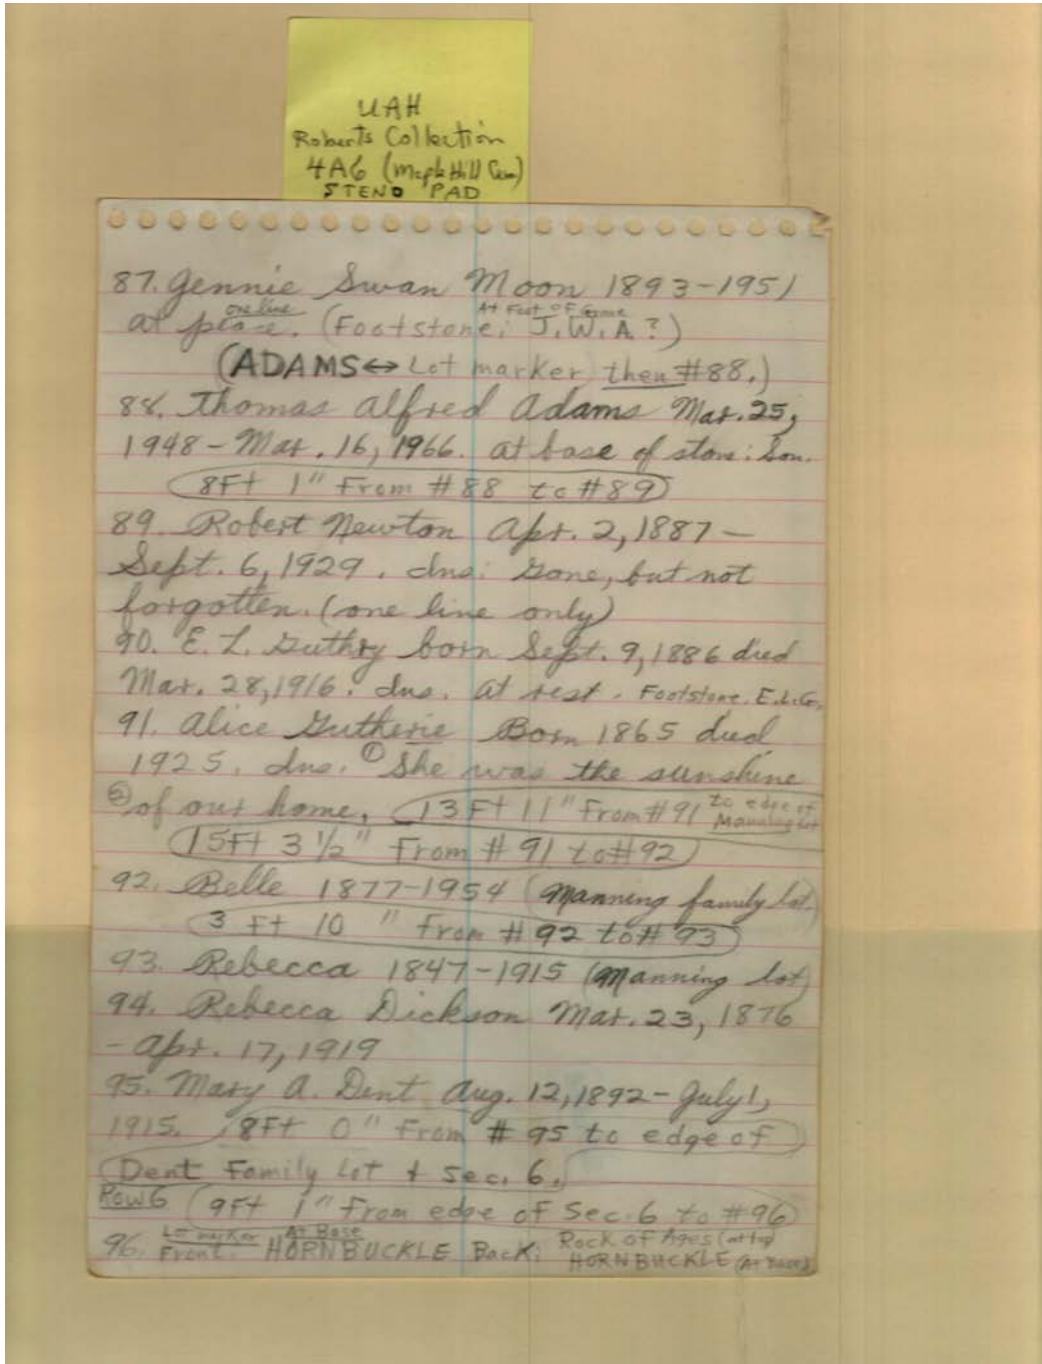 UAH
Roberts Collection
4A6 (Maple Hill Cem)
STENO PAD
87. Jennie Swan Moon 1893-1951
one line At Foot of Grave
at peace. (Footstone: J.W.A.?)
(ADAMS↔ Lot marker then #88.)
88. Thomas Alfred Adams Mar. 25,
1948 - Mar. 16, 1966. at base of stone: Son.
8Ft 1" From #88 to #89
89. Robert Newton Apr. 2, 1887 -
Sept. 6, 1929. ins: Gone, but not
forgotten. (one line only)
90. E. L. Guthry born Sept. 9, 1886 died
Mar. 28, 1916. ins. At rest. Footstone. E.L.G.
91. Alice Gutherie Born 1865 died
1925. ins. ① She was the sunshine
② of our home, 13 Ft 11" From #91 to edge of
Manning Lot
15Ft 3 1/2" From #91 to #92
92. Belle 1877-1954 (Manning family lot.)
3 Ft 10 " From #92 to #93
93. Rebecca 1847-1915 (Manning lot)
94. Rebecca Dickson Mar. 23, 1876
- Apr. 17, 1919
95. Mary A. Dent Aug. 12, 1892 - July 1,
1915. 8Ft 0" From #95 to edge of
Dent Family Lot + Sec. 6.
Row 6 9Ft 1" From edge of Sec. 6 to #96
Lot marker At Base Rock of Ages (at top)
96. Front: HORNBUCKLE Back: HORNBUCKLE (At Base)